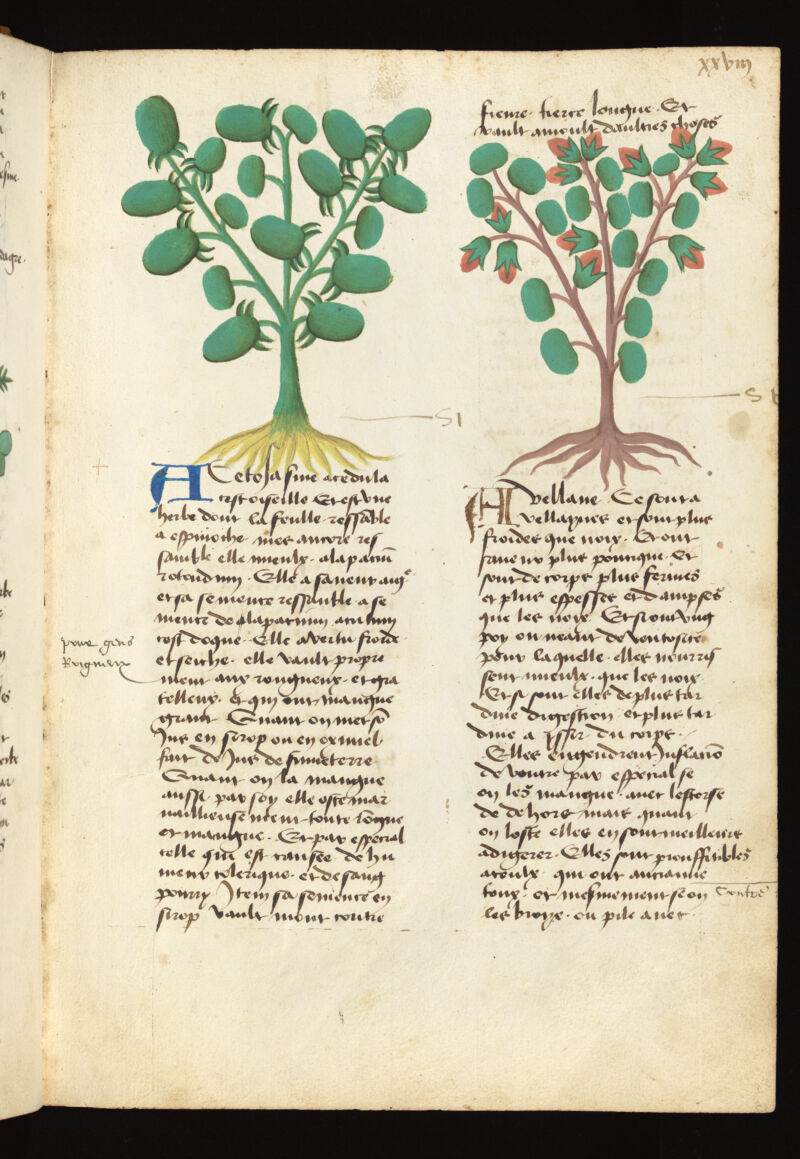 xxviij
Acetosa sive acedula
cest oiseille Et est une
herbe dont la foulle ressable
a espinoche mes ancore res
samble elle mieulx a lapacium
rotundum Elle a saveur aigre
et sa semence ressamble a se
mence de alapacium acutum
cost doque Elle a vertu froide
et seiche elle vault propre
ment aux rongneux et gra
telleux et qui ont mangue
grant Quant on met so
Jus en sirop ou en oximel
fait de Jus de fumeterre
Quant on la mangue
aussi par soy elle oste mar
vailleusement toute longue
et mangue Et par especial
celle qui est causee de hu
meur colerique et de sang
pourry Item sa semence en
sirop vault mont contre
pour gens
Rongneux
fievre tierce longue Et
vault a moult daultres choses
Avellane Ce sont a
vellaynes et sont plus
froides que noix Et ont
saveur plus pontique Et
sont de corps plus fermes
et plus espesses et dampses
que les noix Et si ont ung
poy ou neant de ventosite
pour laquelle elles nourris
sent mieulx que les noix
Et si sont elles de plus tar
dive digestion et plus tar
dive a isser du corps
Elles engendrent Inflacion
de ventre par especial se
on les mangue avec lescorse
de dehors mais quant
on loste elles en sont meilleures
a digerer Elles sont prouffitables
a ceulx qui ont ancianne
toux et mesmement se on
les broye ou pile avec
Contre